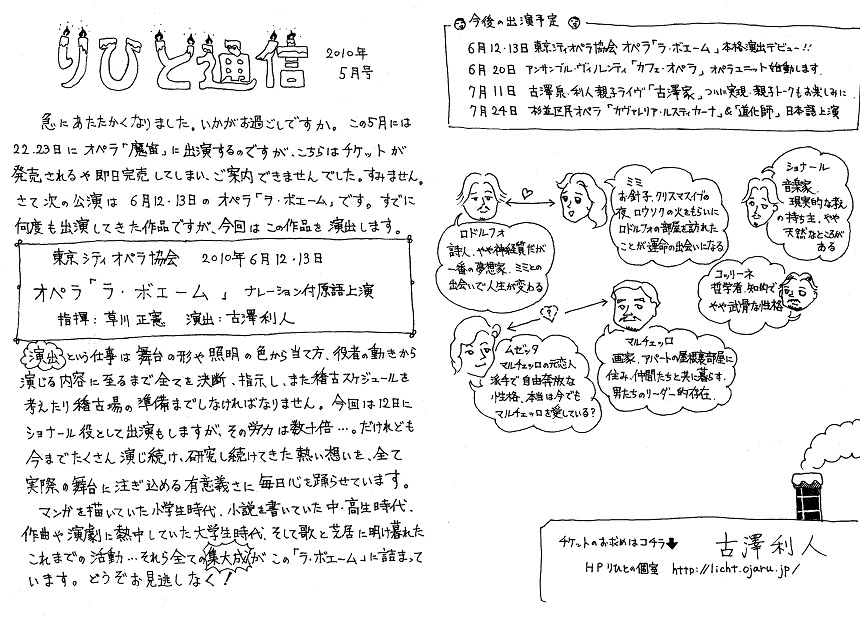 りひと通信
2010年
5月号
急にあたたかくなりました。いかがお過ごしですか。この5月には
22.23日にオペラ「魔笛」に出演するのですが、こちらはチケットが
発売されるや即日完売してしまい、ご案内できませんでした。すみません。
さて次の公演は 6月12・13日のオペラ「ラ・ボエーム」です。すでに
何度も出演してきた作品ですが、今回はこの作品を演出します。
東京シティオペラ協会 2010年6月12・13日
オペラ「ラ・ボエーム」 ナレーション付原語上演
指揮:草川正憲 演出:古澤利人
演出という仕事は舞台の形や照明の色から当て方、役者の動きから
演じる内容に至るまで全てを決断、指示し、また稽古スケジュールを
考えたり稽古場の準備までしなければなりません。今回は12日に
ショナール役として出演もしますが、その労力は数十倍…。だけれども
今までたくさん演じ続け、研究し続けてきた熱い想いを、全て
実際の舞台に注ぎ込める有意義さに毎日心を踊らせています。
マンガを描いていた小学生時代、小説を書いていた中・高生時代、
作曲や演劇に熱中していた大学生時代、そして歌と芝居に明け暮れた
これまでの活動…それら全ての集大成がこの「ラ・ボエーム」に詰まって
います。どうぞお見逃しなく!
今後の出演予定
6月12・13日 東京シティオペラ協会 オペラ「ラ・ボエーム」本格演出デビュー!!
6月20日 アンサンブル・ヴィルレンティ「カフェ・オペラ」オペラユニット始動します.
7月11日 古澤泉・利人親子ライヴ「古澤家」ついに実現・親子トークもお楽しみに
7月24日 杉並区民オペラ「カヴァレリア・ルスティカーナ」&「道化師」日本語上演
ロドルフォ
詩人、やや神経質だが
一番の夢想家、ミミとの
出会いで人生が変わる
ミミ
お針子、クリスマスイブの
夜、ロウソクの火をもらいに
ロドルフォの部屋を訪れた
ことが運命の出会いになる
ショナール
音楽家、
現実的な考え
の持ち主、やや
天然なところが
ある
コッリーネ
哲学者、知的で
やや武骨な性格
ムゼッタ
マルチェッロの元恋人
派手で自由奔放な
性格、本当は今でも
マルチェッロを愛している?
マルチェッロ
画家、アパートの屋根裏部屋に
住み、仲間たちと共に暮らす.
男たちのリーダー的存在.
チケットのお求めはコチラ
古澤利人
HPりひとの個室 http://licht.ojaru.jp/